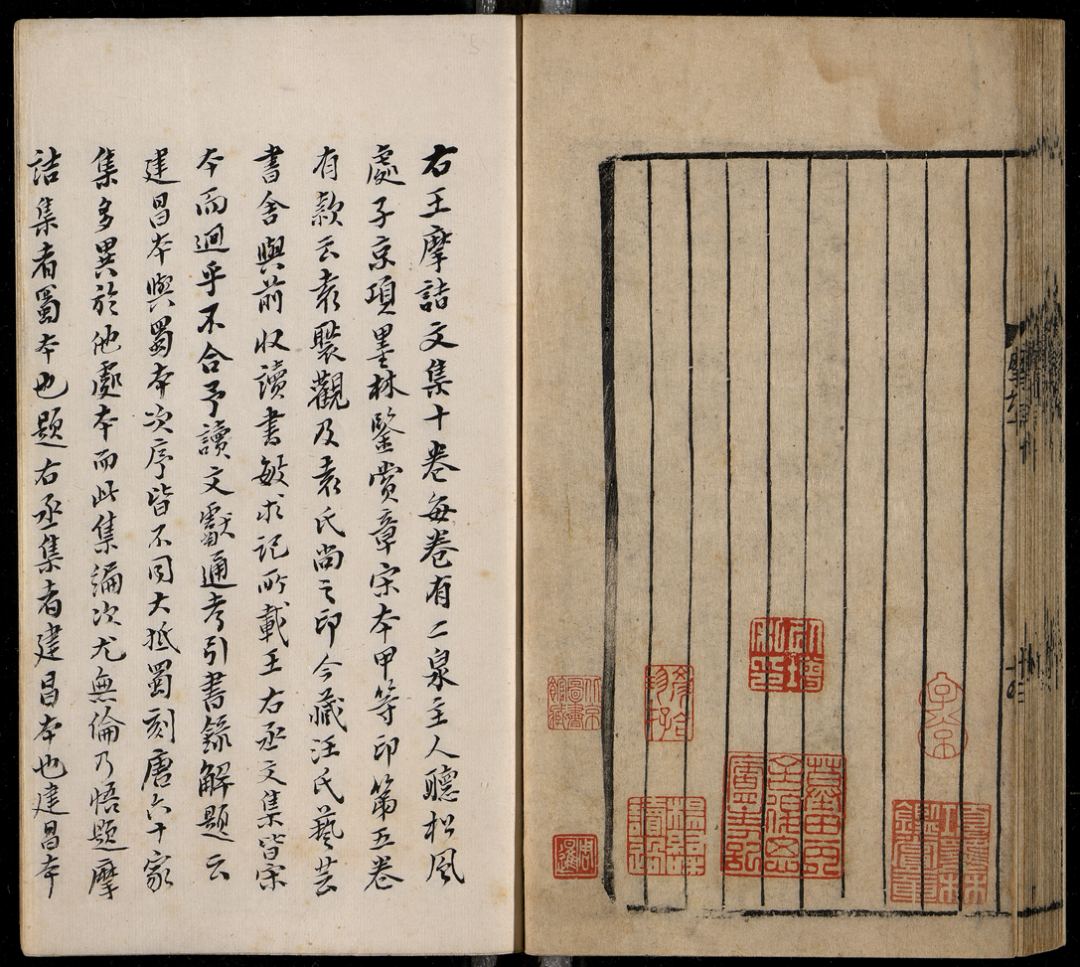 右王摩詰文集十卷每卷有二泉主人聽松風
處子京項墨林鑒賞章宋本甲等印第五卷
有款云袁褧觀及袁氏尚之印今藏汪氏藝芸
書舍與前收讀書敏求記所載王右丞文集皆宋
本而迥乎不合予讀文獻通考引書錄解題云
建昌本與蜀本次序皆不同大抵蜀刻唐六十家
集多異於他處本而此集編次尤無倫乃悟題摩
詰集者蜀本也題右丞集者建昌本也建昌本
子京
項墨林
鑒賞章
楊氏
讀過
周暹